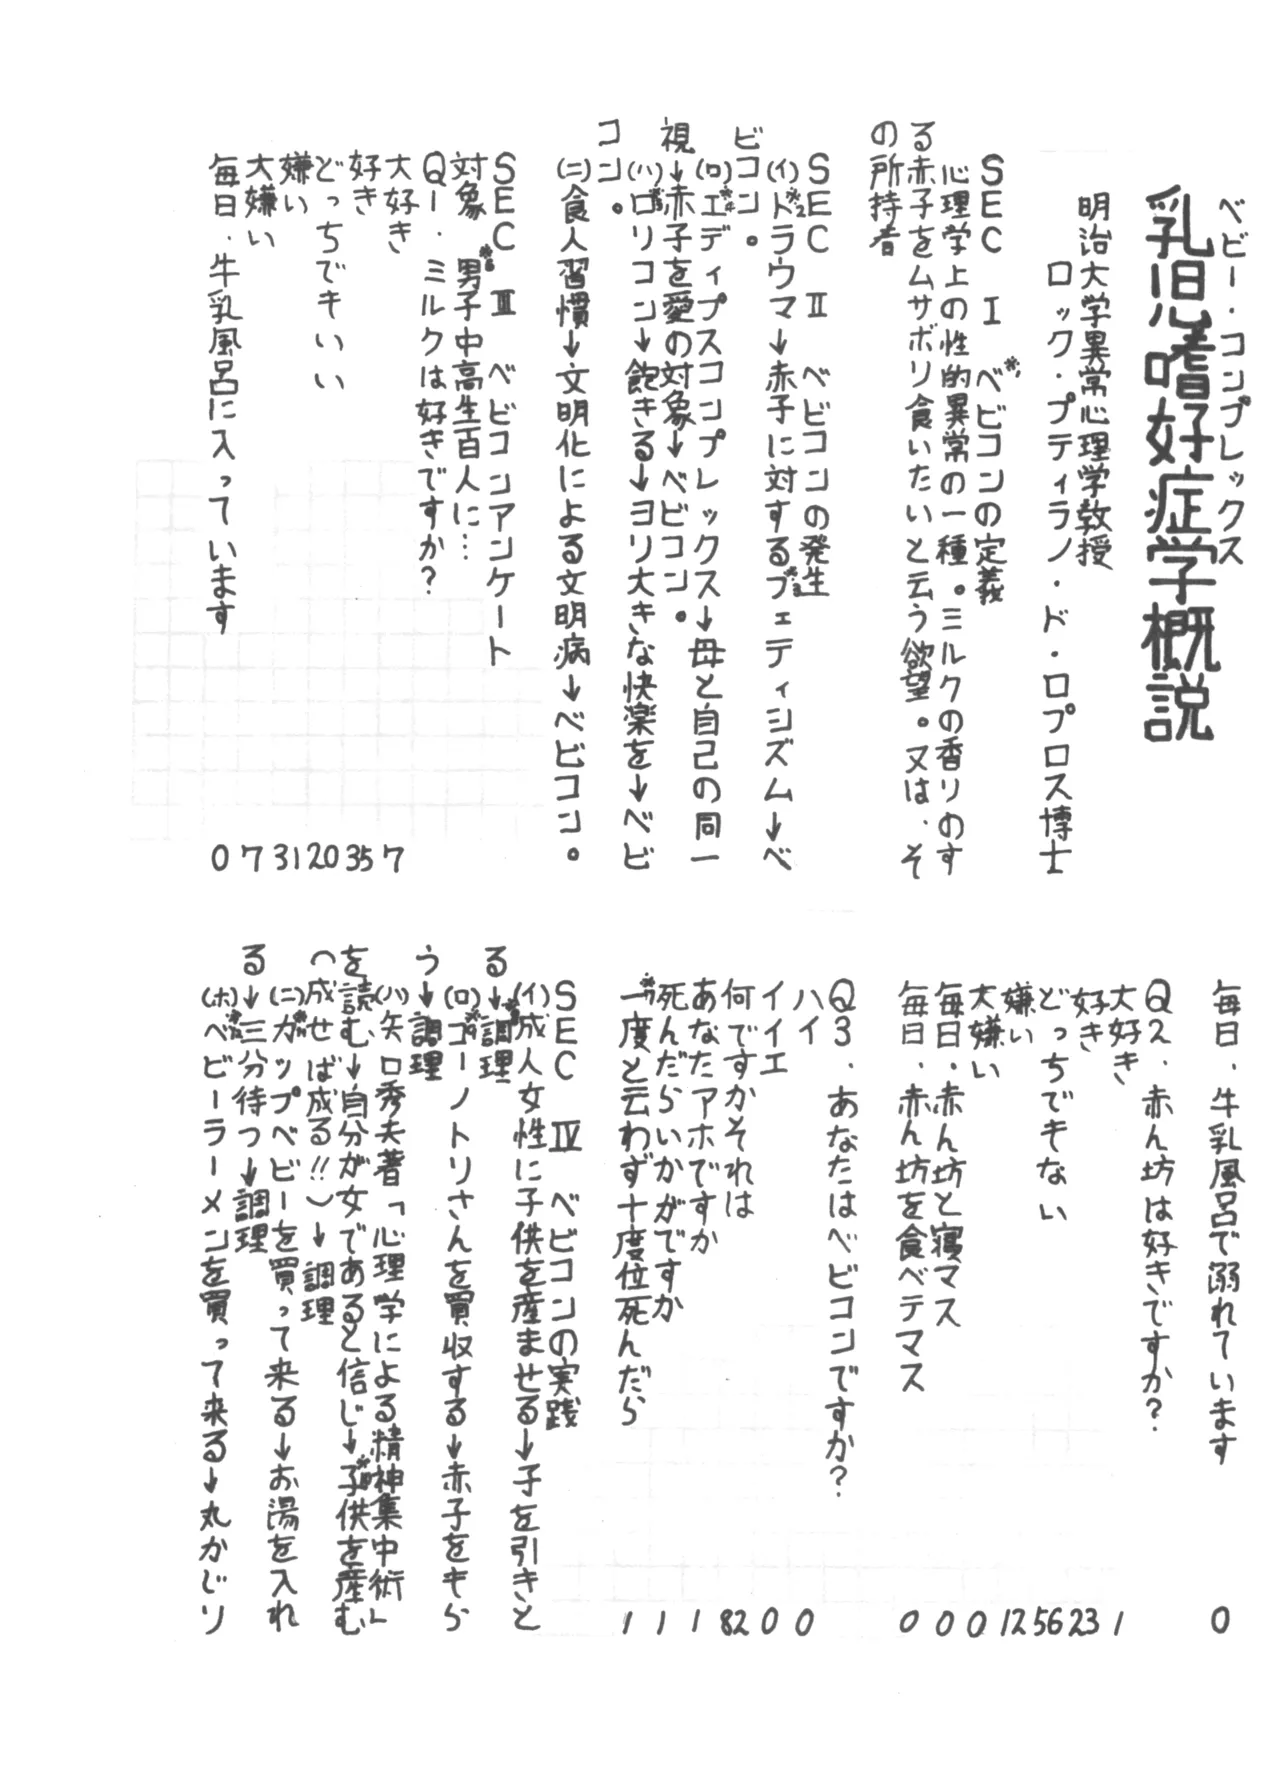 ベビー・コンプレックス
乳児嗜好症学概説
明治大学異常心理学教授
ロック・プティラノ・ド・ロプロス博士
SEC Ⅰ ※1ベビコンの定義
心理学上の性的異常の一種。ミルクの香りのす
る赤子をムサボリ食いたいと云う欲望。又は、そ
の所持者
SEC Ⅱ ベビコンの発生
(イ)※2トラウマ→赤子に対する※3フェティシズム→ベ
ビコン。
(ロ)※4エディプスコンプレックス→母と自己の同一
視→赤子を愛の対象→ベビコン。
(ハ)※5ロリコン→飽きる→ヨリ大きな快楽を→ベビ
コン。
(ニ)食人習慣→文明化による文明病→ベビコン。
SEC Ⅲ ベビコンアンケート
対象 ※6男子中高生百人に…
Q1.ミルクは好きですか? 
大好き 7
好き 35
どっちでもいい 20
嫌い 31
大嫌い 7
毎日、牛乳風呂に入っています 0
毎日、牛乳風呂で溺れています 0
Q2.赤ん坊は好きですか?
大好き 1
好き 23
どっちでもない 56
嫌い 12
大嫌い 0
毎日、赤ん坊と寝マス 0
毎日、赤ん坊を食べテマス 0
Q3.あなたはベビコンですか?
ハイ 0
イイエ 0
何ですかそれは 82
あなたアホですか 1
死んだらいかがですか 1
※7一度と云わず十度位死んだら 1
SEC Ⅳ ベビコンの実践
(イ)成人女性に子供を産ませる→子を引きと
る→※8調理
(ロ)※9コーノトリさんを買収する→赤子をもら
う→調理
(ハ)矢口秀夫著「心理学による精神集中術」
を読む→自分が女であると信じ→※10子供を産む
(成せば成る!!)→調理
(ニ)※11カップベビーを買って来る→お湯を入れ
る→三分待つ→調理
(ホ)※12ベビーラーメンを買って来る→丸かじり